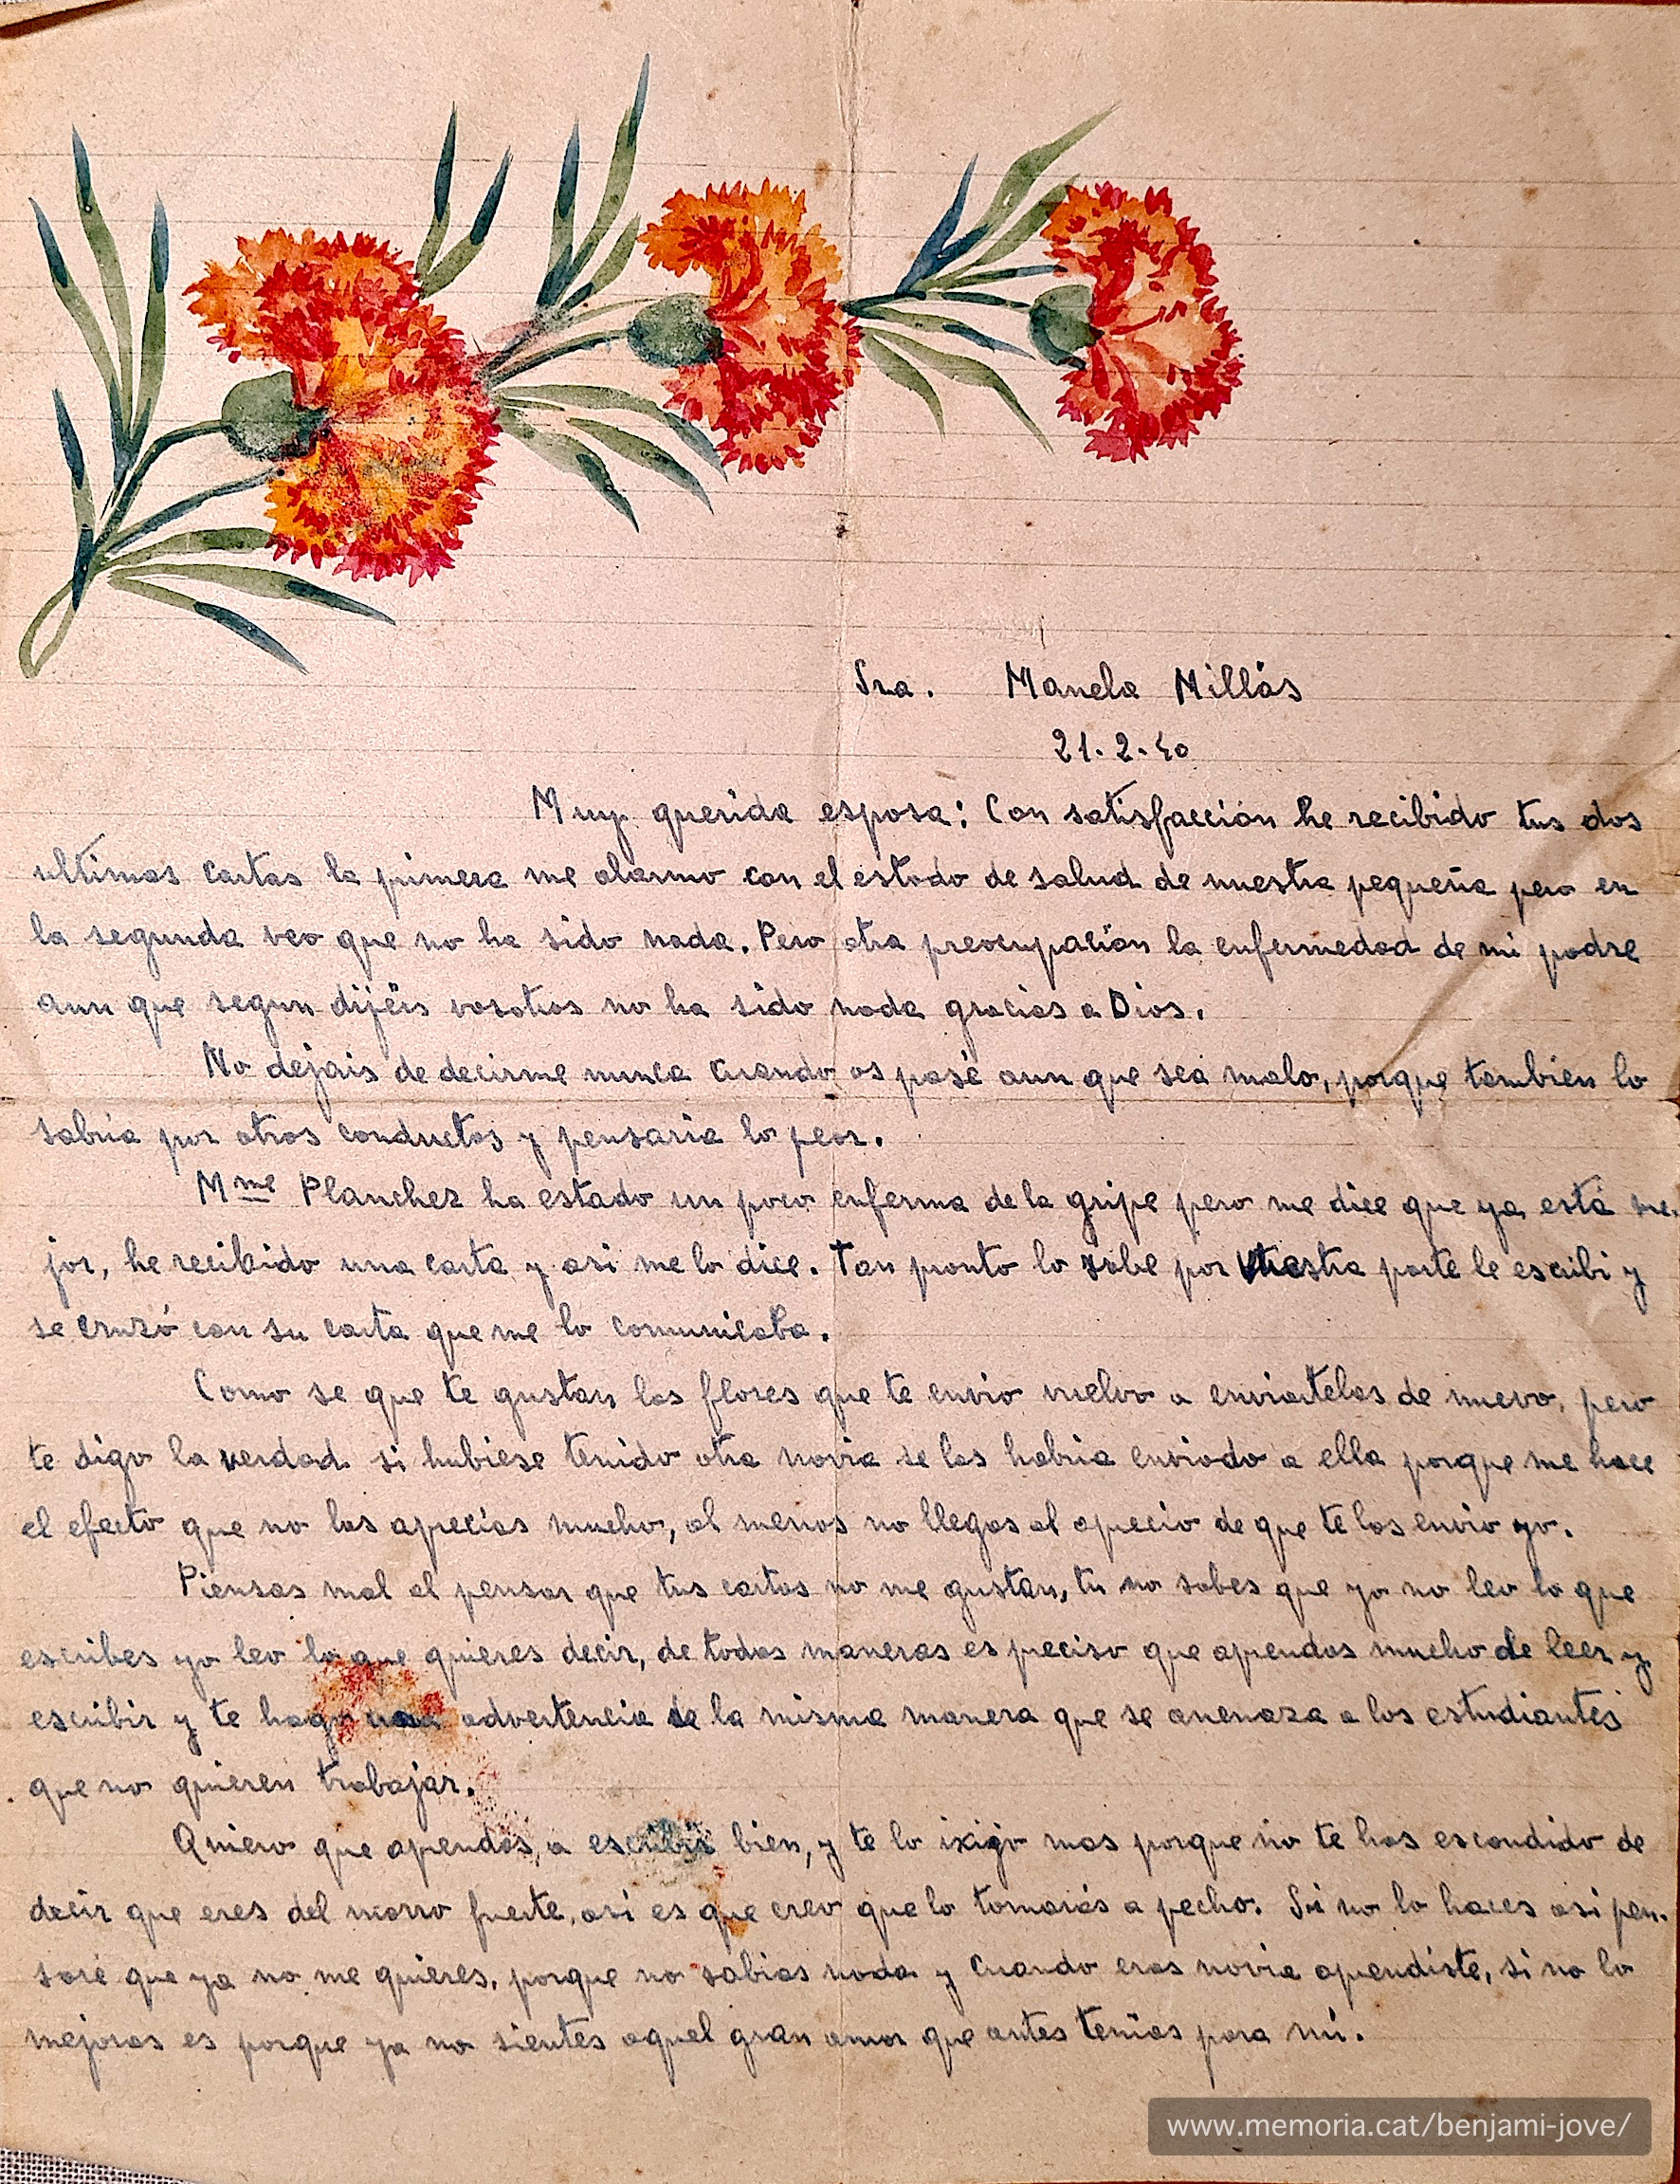 Sra. Manela Millás
21.2.40
Muy querida esposa: Con satisfacción he recibido tus dos
ultimas cartas la primera me alarmo con el estado de salud de nuestra pequeña pero en
la segunda veo que no ha sido nada. Pero otra preocupación la enfermedad de mi padre
aun que segun dijéis vosotros no ha sido nada gracias a Dios.
No dejais de decirme nunca cuando os pasé aun que sea malo, porque tambien lo
sabria por otros conductos y pensaria lo peor.
Mme Planchez ha estado un poco enferma de la gripe pero me dice que ya está me-
jor, he recibido una carta y asi me lo dice. Tan pronto lo sabe por vuestra parte le escribi y
se cruzó con su carta que me lo comunicaba.
Como se que te gustan las flores que te envio vuelvo a enviartelas de nuevo, pero
te digo la verdad si hubiese tenido otra novia se las habria enviado a ella porque me hace
el efecto que no las aprecias mucho, al menos no llegas al aprecio de que te las envio yo.
Piensas mal al pensar que tus cartas no me gustan, tu no sabes que yo no leo lo que
escribes yo leo lo que quieres decir, de todas maneras es preciso que aprendas mucho de leer y
escribir y te hago una advertencia de la misma manera que se amenaza a los estudiantes
que no quieren trabajar.
Quiero que aprendas, a escribir bien, y te lo ixigo mas porque no te has escondido de
decir que eres del morro fuerte, asi es que creo que lo tomarás a pecho. Si no lo haces asi pen-
saré que ya no me quieres, porque no sabias nada y cuando eras novia aprendiste, si no lo
mejoras es porque ya no sientes aquel gran amor que antes tenias para mi.
www.memoria.cat/benjami-jove/